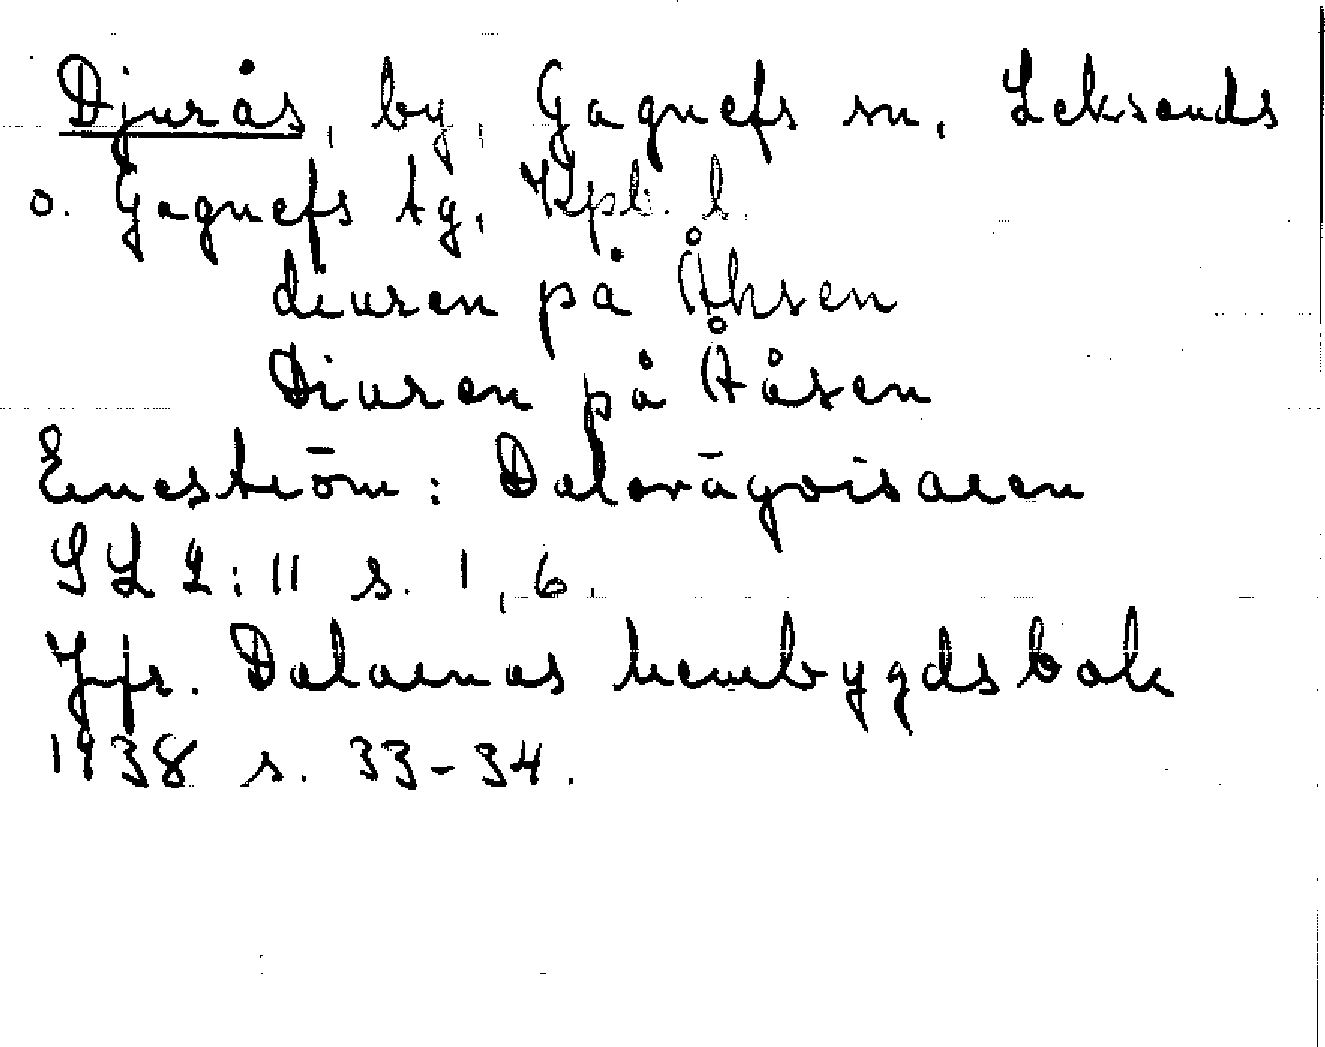 Djurås, by, Gagnefs sn, Leksands
o. Gagnefs tg, Kpb. l.
diuren på Åhsen
Diuren på Ååsen
Eneström: Dalvägvisaren
SLL: 11 s. 1, 6.
Jfr. Dalarnas hembygdsbok
1938 s. 33-34.